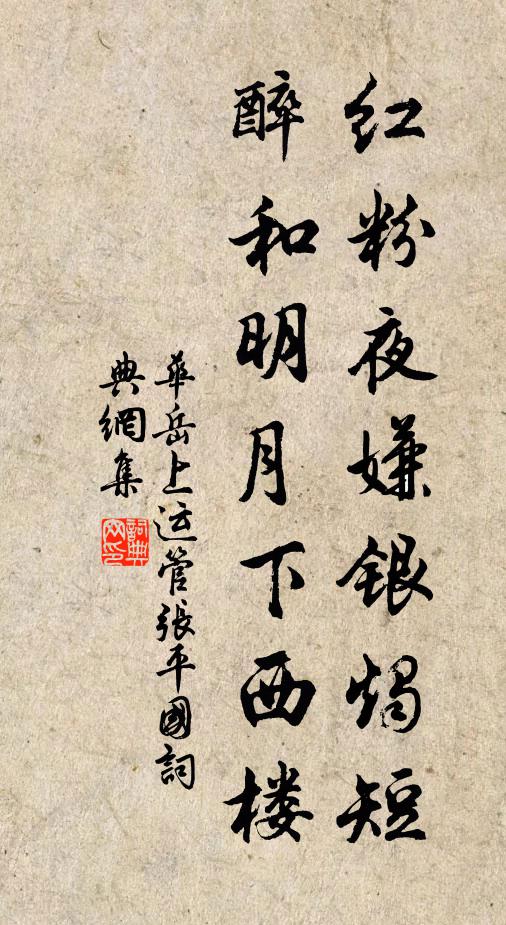 红粉夜嫌银烛短
醉和明月下西楼
華岳上运管張平國詞
典網集
詞典网印